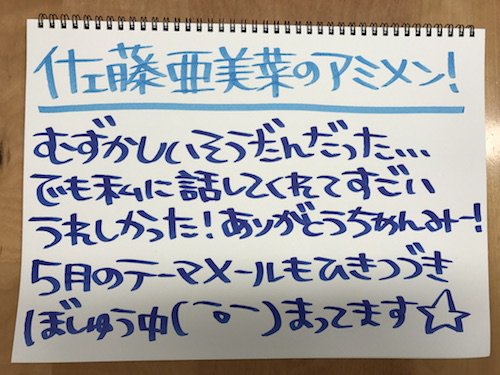 佐藤亜美菜のアミメン!
むずかしいそうだんだった...
でも私に話してくれてすごい
うれしかった!ありがとうちゅんみー!
5月のテーマメールもひきつづき
ぼしゅう中(¯o¯)まってます☆